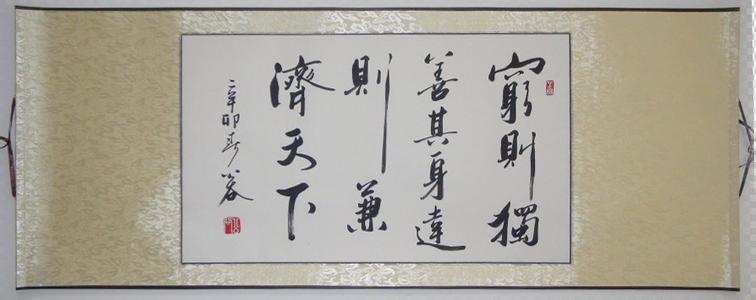 窮則獨
善其身達
則兼
濟天下
辛卯春